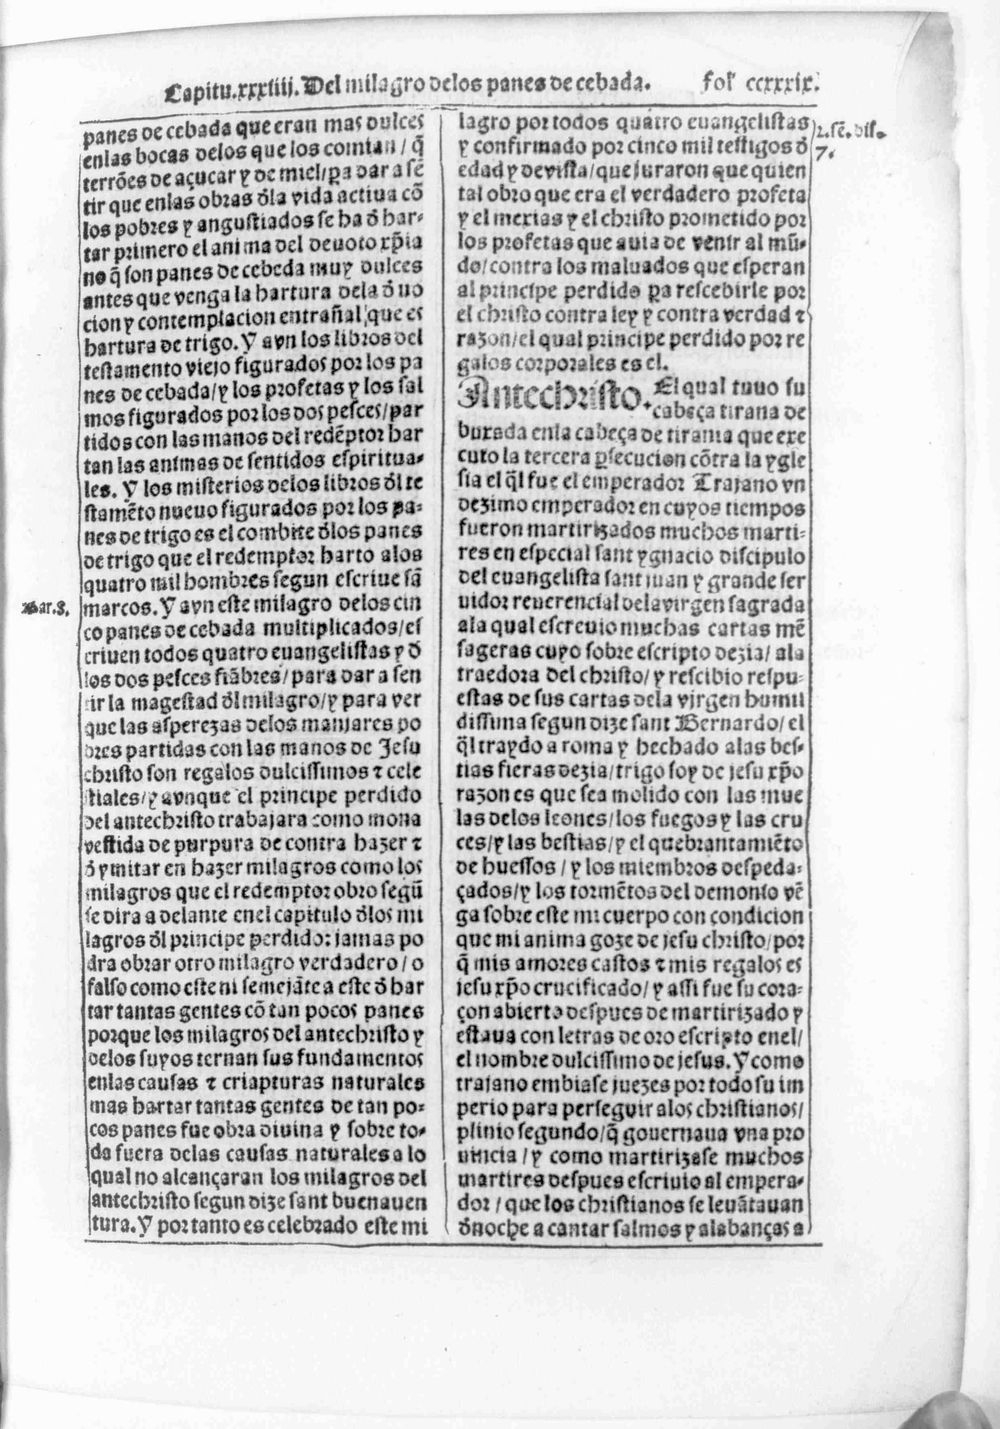 Capitu.xxxiiij. Del milagro delos panes de cebada. fol' ccxxxix.
panes de cebada que eran mas dulces
enlas bocas delos que los comian/q̃
terrões de açucar y de miel/pa dar a sẽ
tir que enlas obras d̃la vida actiua cõ
los pobres y angustiados se ha d̃ har-
tar primero el anima del deuoto xp̃ia
no q̃ son panes de cebeda muy dulces
antes que venga la hartura dela d̃uo
cion y contemplacion entrañal/que es
hartura de trigo. Y avn los libros del
testamento viejo figurados por los pa
nes de cebada/y los profetas y los sal
mos figurados por los dos pesces/par
tidos con las manos del redẽptor har
tan las animas de sentidos espiritua-
les. Y los misterios delos libros d̃l te
stamẽto nueuo figurados por los pa-
nes de trigo es el combite d̃los panes
de trigo que el redemptor harto alos
quatro mil hombres segun escriue sã
Mar.8.
marcos. Y avn este milagro delos cin
co panes de cebada multiplicados/es
criuen todos quatro euangelistas y d̃
los dos pesces fiãbres/para dar a sen
tir la magestad d̃l milagro/y para ver
que las asperezas delos manjares po
bres partidas con las manos de Jesu
christo son regalos dulcissimos ⁊ cele
stiales/y avnque el principe perdido
del antechristo trabajara como mona
vestida de purpura de contra hazer ⁊
d̃ ymitar en hazer milagros como los
milagros que el redemptor obro segũ
se dira adelante enel capitulo d̃los mi
lagros d̃l principe perdido: jamas po
dra obrar otro milagro verdadero/o
falso como este ni semejãte a este d̃ har
tar tantas gentes cõ tan pocos panes
porque los milagros del antechristo y
delos suyos ternan sus fundamentos
enlas causas ⁊ criapturas naturales
mas hartar tantas gentes de tan po-
cos panes fue obra diuina y sobre to-
da fuera delas causas naturales a lo
qual no alcançaran los milagros del
antechristo segun dize sant buenauen
tura. Y por tanto es celebrado este mi
lagro por todos quatro euangelistas
2.sẽ.dis.
7.
y confirmado por cinco mil testigos d̃
edad y de vista/que juraron que quien
tal obro que era el verdadero profeta
y el mexias y el christo prometido por
los profetas que auia de venir al mũ-
do/contra los maluados que esperan
al principe perdido pa rescebirle por
el christo contra ley y contra verdad ⁊
razon/el qual principe perdido por re
galos corporales es el.
Antechristo. El qual tuuo su
cabeça tirana de
buxada enla cabeça de tirania que exe
cuto la tercera ꝑsecucion cõtra la ygle
sia el q̃l fue el emperador Trajano vn
dezimo emperador en cuyos tiempos
fueron martirizados muchos marti-
res en especial sant ygnacio discipulo
del euangelista sant juan y grande ser
uidor reuerencial dela virgen sagrada
ala qual escreuio muchas cartas mẽ
sageras cuyo sobre escripto dezia/ ala
traedora del christo/y rescibio respu-
estas de sus cartas dela virgen humil
dissima segun dize sant Bernardo/el
q̃l traydo a roma y hechado alas bes-
tias fieras dezia/trigo soy de jesu xp̃o
razon es que sea molido con las mue
las delos leones/los fuegos y las cru
ces/y las bestias/y el quebrantamiẽto
de huessos/y los miembros despeda-
çados/y los tormẽtos del demonio vẽ
ga sobre este mi cuerpo con condicion
que mi anima goze de jesu christo/por
q̃ mis amores castos ⁊ mis regalos es
jesu xp̃o crucificado/y assi fue su cora-
çon abierto despues de martirizado y
estaua con letras de oro escripto enel/
el nombre dulcissimo de jesus. Y como
trajano embiase juezes por todo su im
perio para perseguir alos christianos/
plinio segundo/q̃ gouernaua vna pro
uincia/y como martirizase muchos
martires despues escriuio al empera-
dor/que los christianos se leuãtauan
d̃noche a cantar salmos y alabanças a